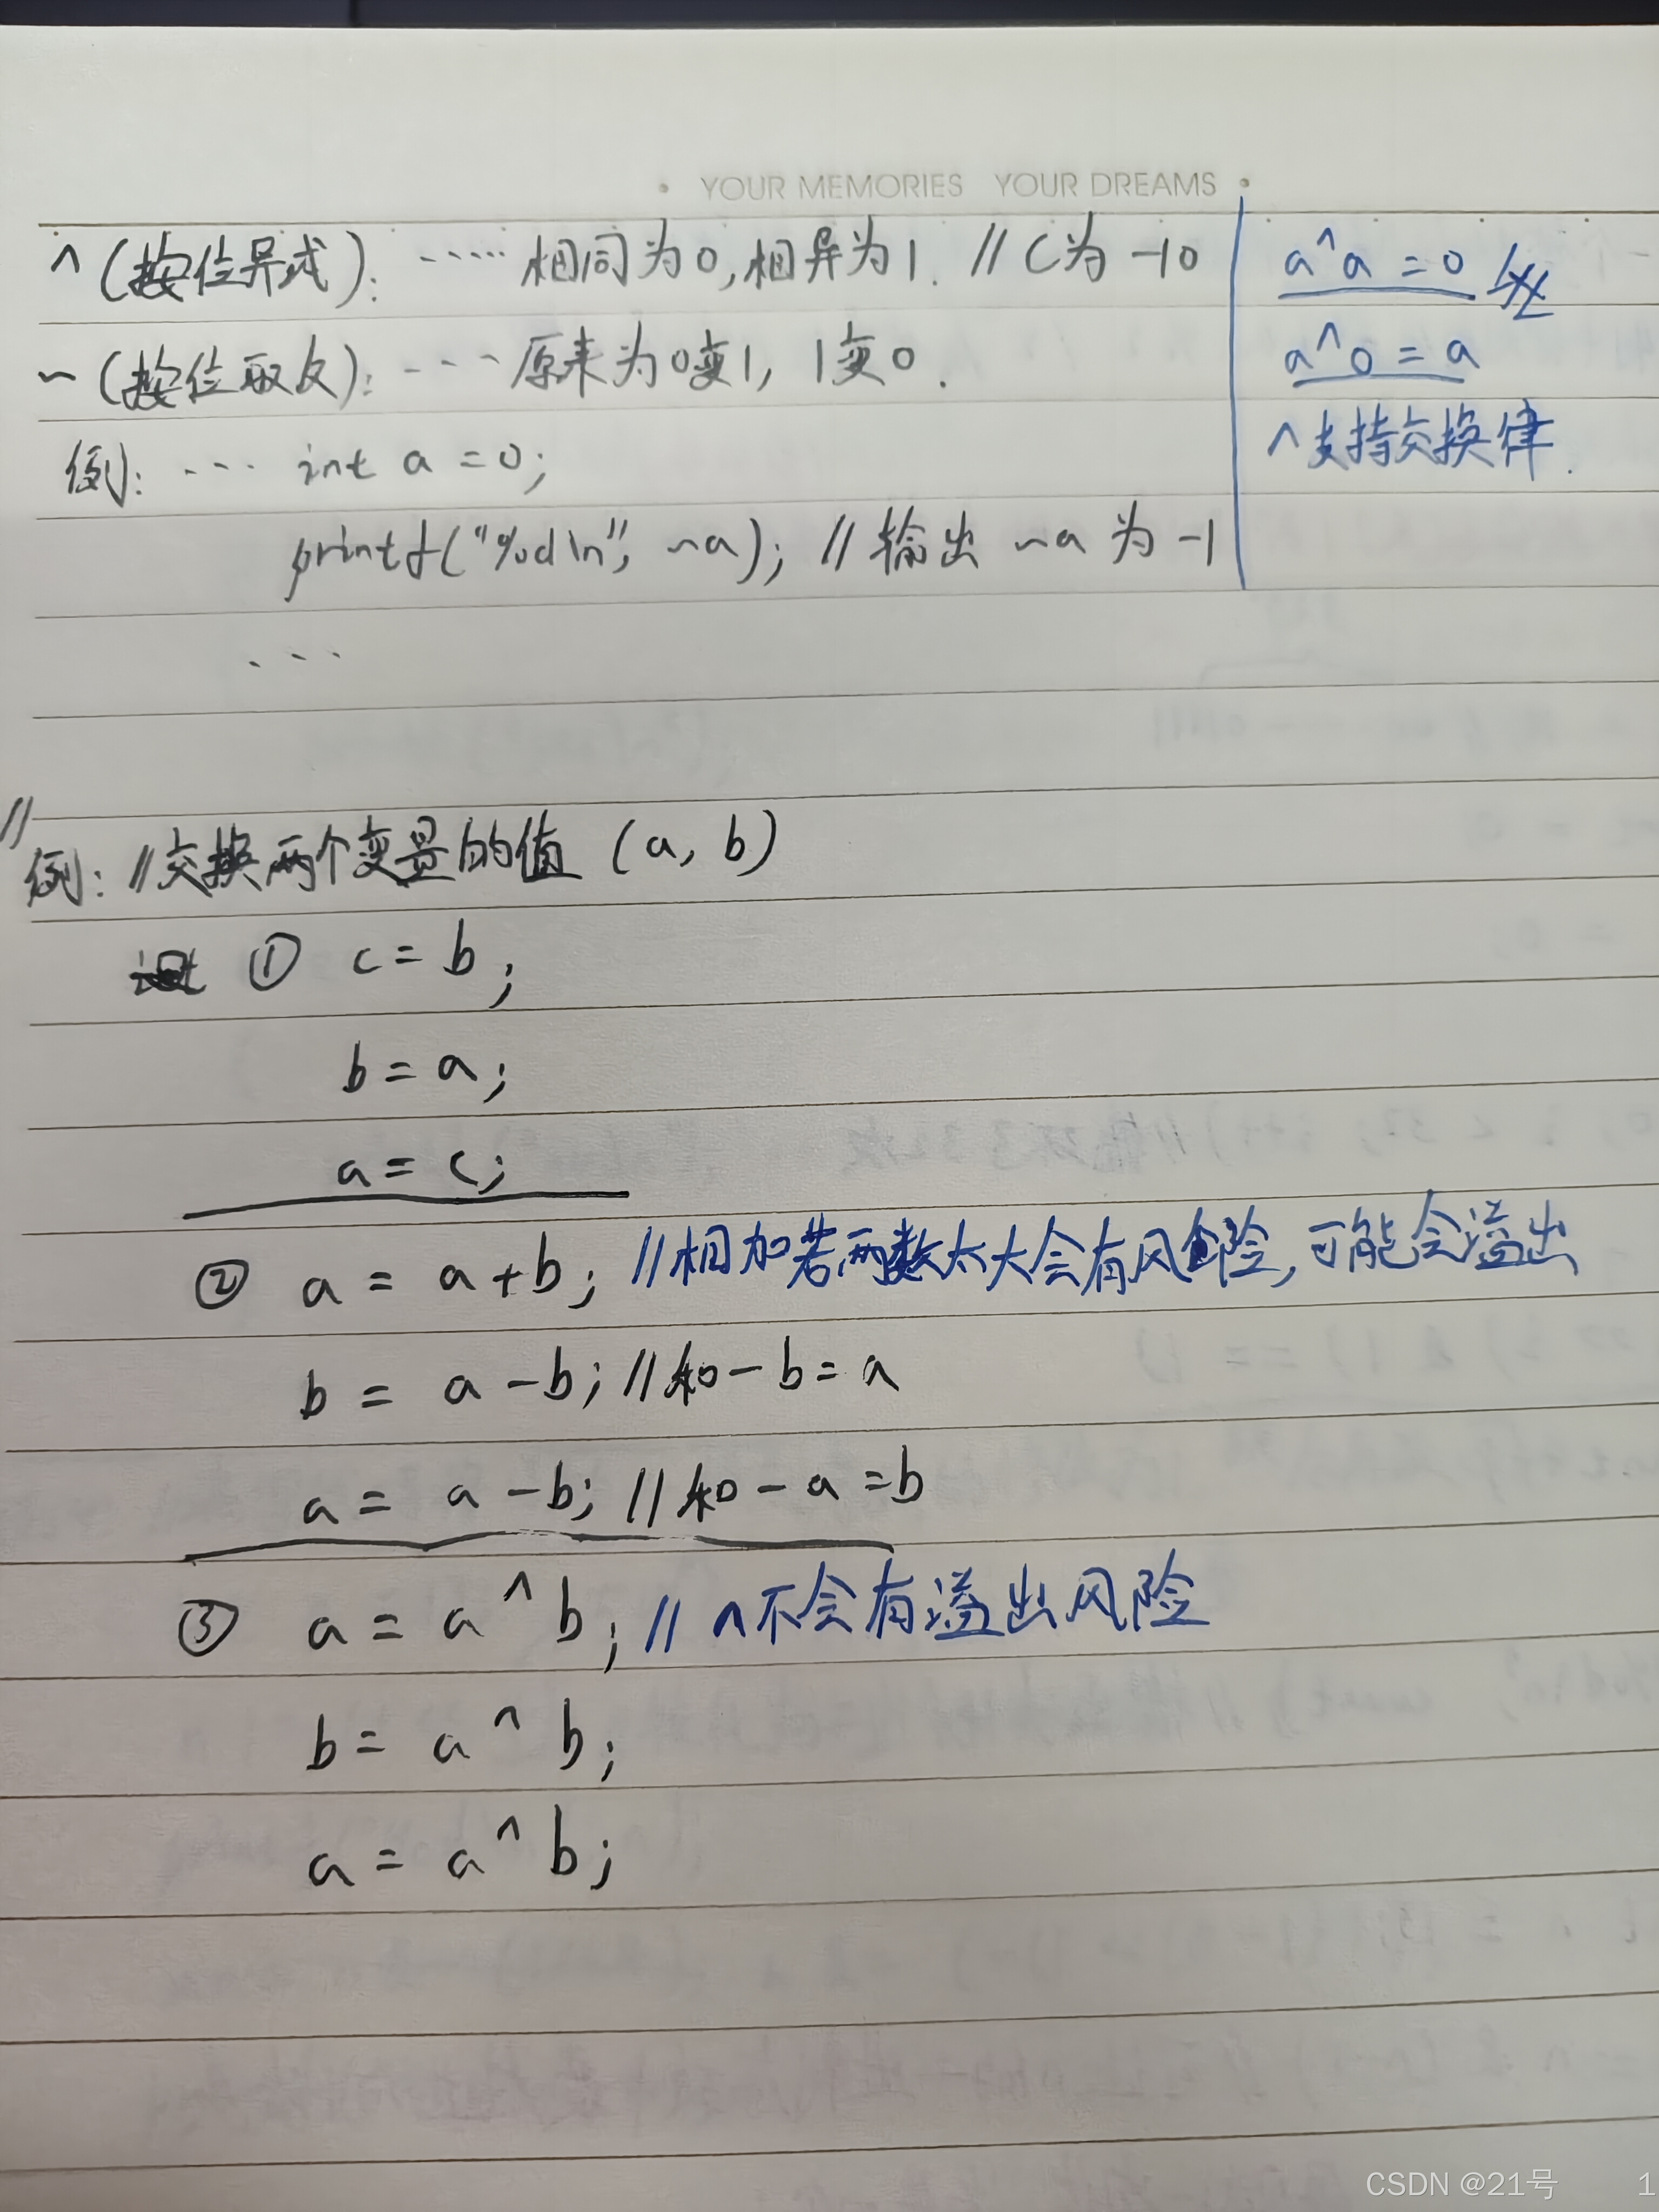 YOUR MEMORIES YOUR DREAMS
^ (按位异或): ······ 相同为0,相异为1. // C为 -10
~ (按位取反): --- 原来为0变1, 1变0.
例: ··· int a = 0;
printf("%d\n", ~a); // 输出 ~a 为 -1
...
a^a = 0
a^0 = a
^支持交换律.
//
例: //交换两个变量的值 (a, b)
① c = b;
b = a;
a = c;
② a = a + b; //相加若两数太大会有风险,可能会溢出
b = a - b; //和 - b = a
a = a - b; //和 - a = b
③ a = a ^ b; // ^不会有溢出风险
b = a ^ b;
a = a ^ b;
CSDN @21号 1